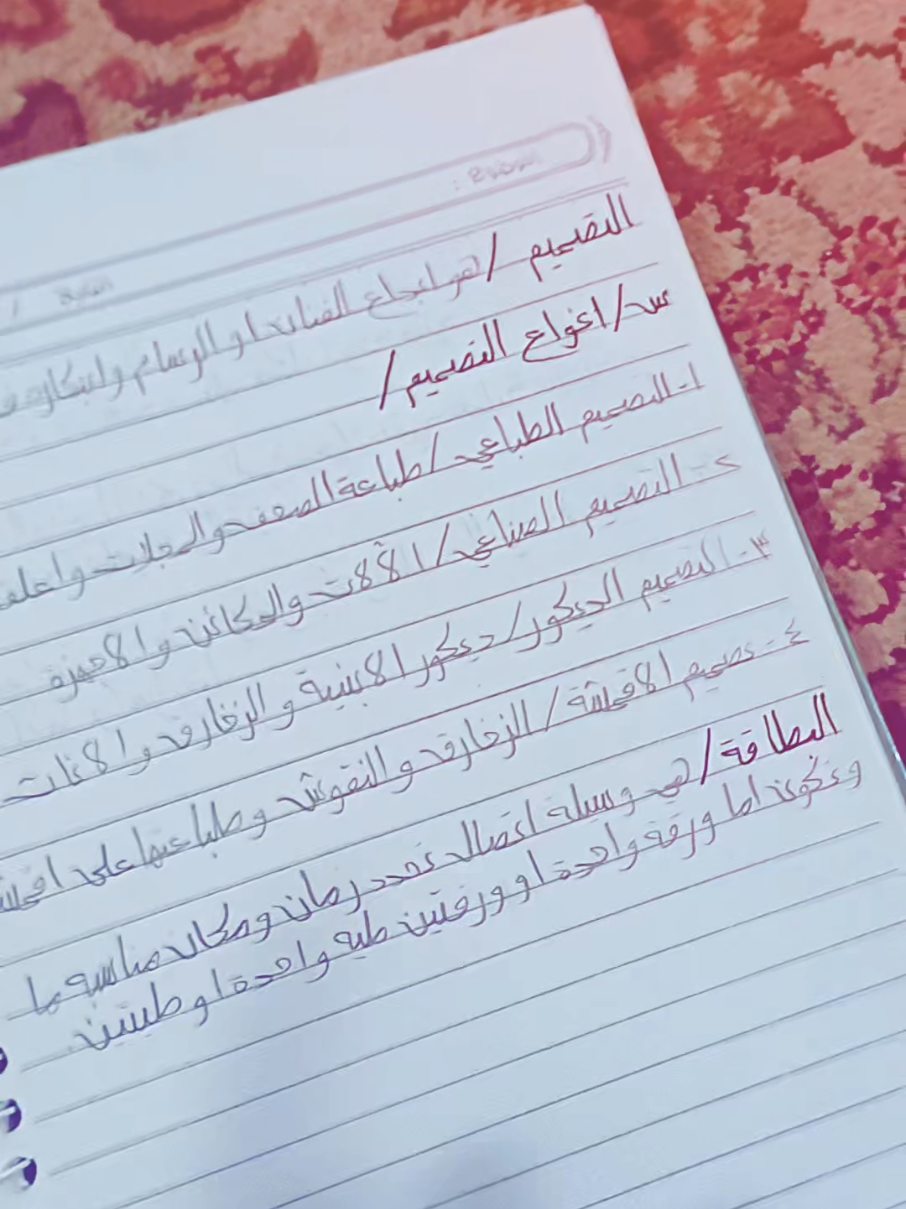 الموضوع :
التصميم / هو ابداع الفنان او الرسام وابتكاره
س/ انواع التصميم /
١- التصميم الطباعي / طباعة الصحف والمجلات
٢- التصميم الصناعي / الآلات والمكائن والاجهزة
٣- التصميم الديكور / ديكور الابنية والزخارف والاثاث
٤- تصميم الاقمشة / الزخارف والنقوش وطباعتها على
البطاقة / هي وسيلة اتصال تحدد زمان ومكان مناسبه ما
وتكون اما ورقة واحدة او ورقتين طيه واحدة او طيتين